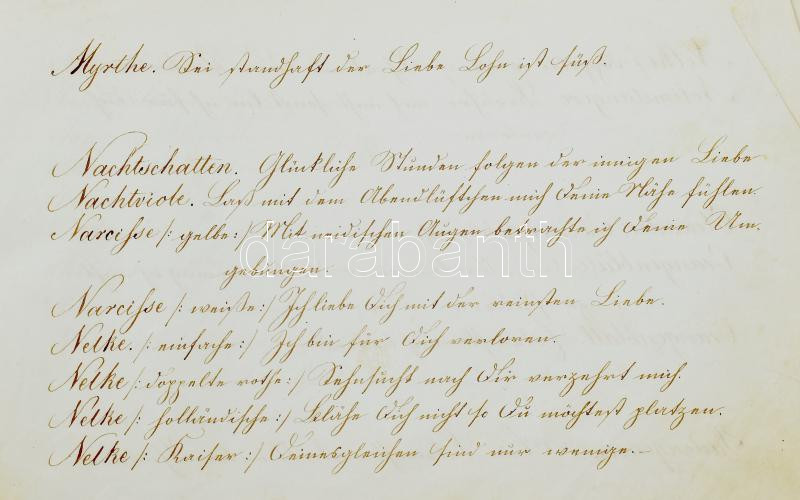 Myrthe. Sei standhaft der Liebe Lohn ist süß.
Nachtschatten. Glückliche Stunden folgen der innigen Liebe
Nachtviole. Laß mit dem Abendlüftchen mich Deine Nähe fühlen.
Narcisse /: gelbe :/ Mit neidischen Augen betrachte ich Deine Um-
gebungen.
darabanth
Narcisse /: weiße :/ Ich liebe Dich mit der reinsten Liebe.
Nelke. /: einfache :/ Ich bin für Dich verloren.
Nelke /: doppelte rothe :/ Sehnsucht nach Dir verzehrt mich.
Nelke /: holländische :/ Blähe Dich nicht so Du möchtest platzen.
Nelke /: Kaiser :/ Deinesgleichen sind nur wenige. –